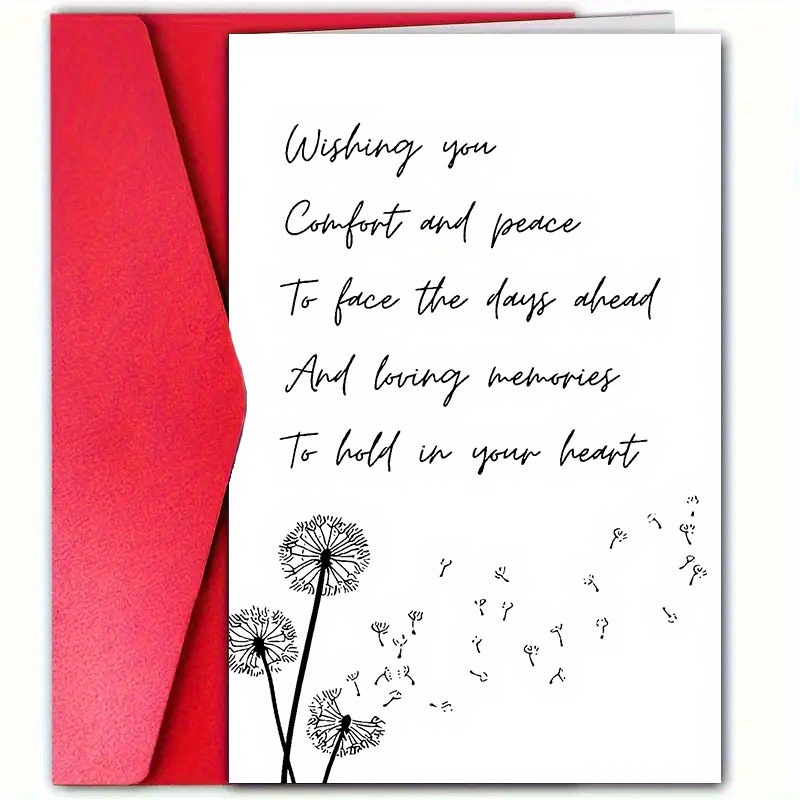 Wishing you
Comfort and peace
To face the days ahead
And loving memories
To hold in your heart